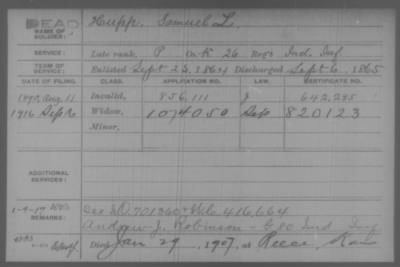 DEAD
NAME OF SOLDIER: Hupp, Samuel L.
SERVICE: Late rank, P Co. K 26 Reg't Ind. Inf
TERM OF SERVICE: Enlisted Sept 23, 1864 Discharged Sept 6, 1865
DATE OF FILING. CLASS. APPLICATION NO. CERTIFICATE NO.
1890, Aug. 11 Invalid, 856,111 J 642,285
1916 Widow, 1074050 820123
Minor,
ADDITIONAL SERVICES:
REMARKS: 701360 416,664
Andrew J. Robinson - G 80 Ind Inf
Died Jan 29, 1907, at Reece, Kan